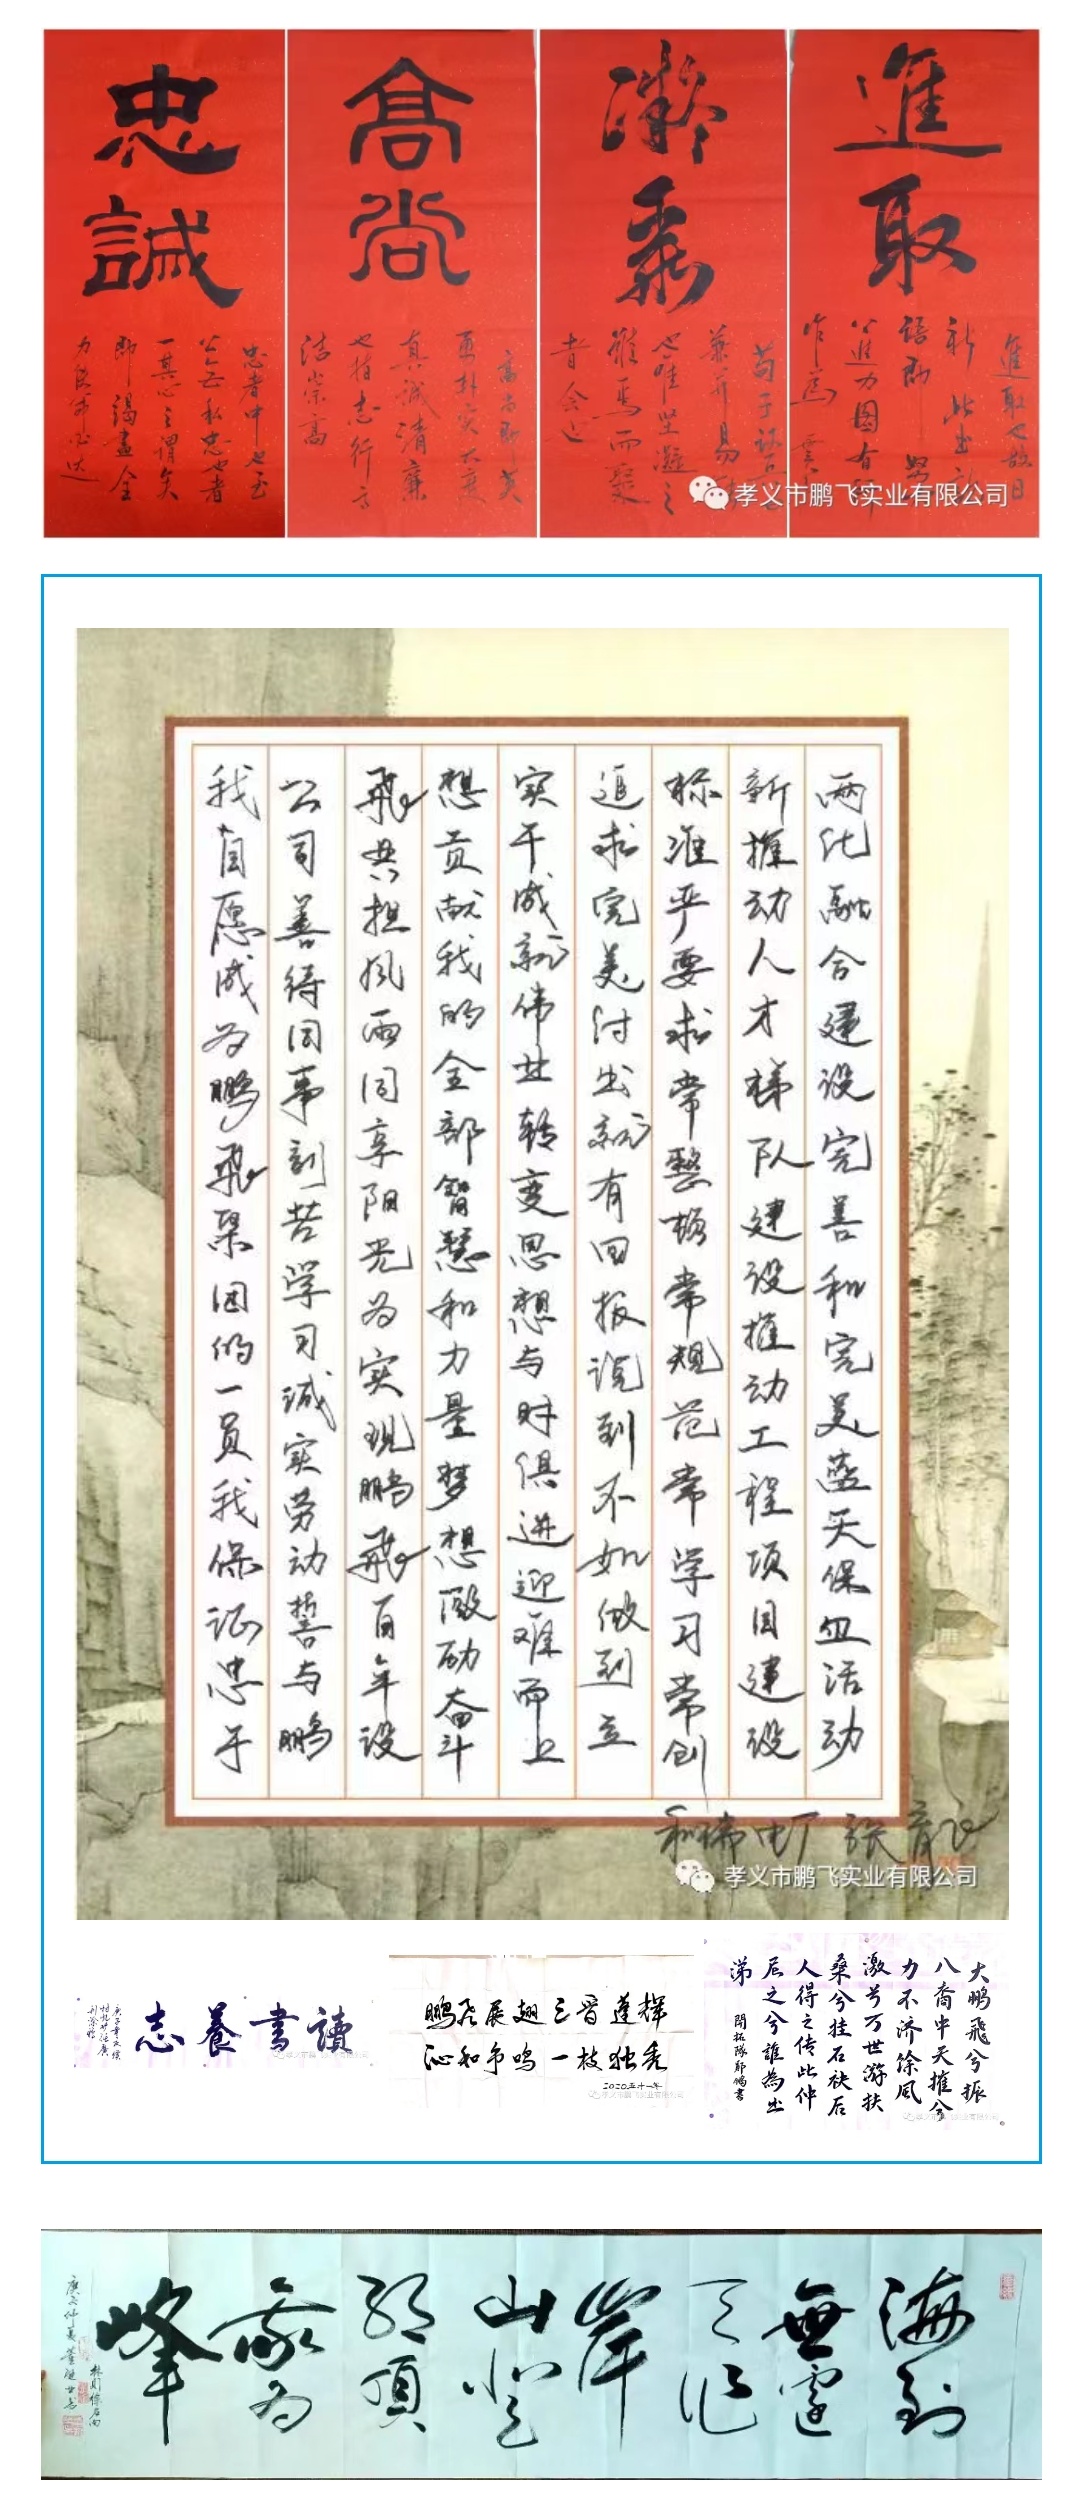 忠誠
忠者中也至
公无私忠也者
一其心之謂矣
即竭盡全
力使命必达
高尚
高尚即美
更朴实大度
真诚清廉
也指志行高
洁崇高
凝聚
荀子议兵
兼并易能
也唯坚凝之
難焉而聚
者会也
進取
進取也敢日
新此出
語即
進力圖有所
作爲
孝义市鹏飞实业有限公司
我自愿成为鹏飛集团的一员我保证忠于
公司善待同事刻苦学习诚实劳动誓与鹏
飛共担风雨同享阳光为实现鹏飛百年设
想贡献我的全部智慧和力量梦想激励奋斗
实干成就伟业转变思想与时俱进迎难而上
追求完美付出就有回报说到不如做到立
标准严要求常整顿常规范常学习常创
新推动人才梯队建设推动工程项目建设
两化融合建设完善和完美蓝天保卫活动
和瑞电厂 张育飞
孝义市鹏飞实业有限公司
讀書養志
鹏飞展翅三晋蓬辉
沁和争鸣一枝独秀
2020
大鹏飛兮振
八裔中天摧兮
力不济餘風
激兮万世游扶
桑兮挂石袂后
人得之传此仲
尼之兮誰為出
涕 開拓隊郭鵬書
海到
無邊
天作
岸
山登
絕頂
我为
峰